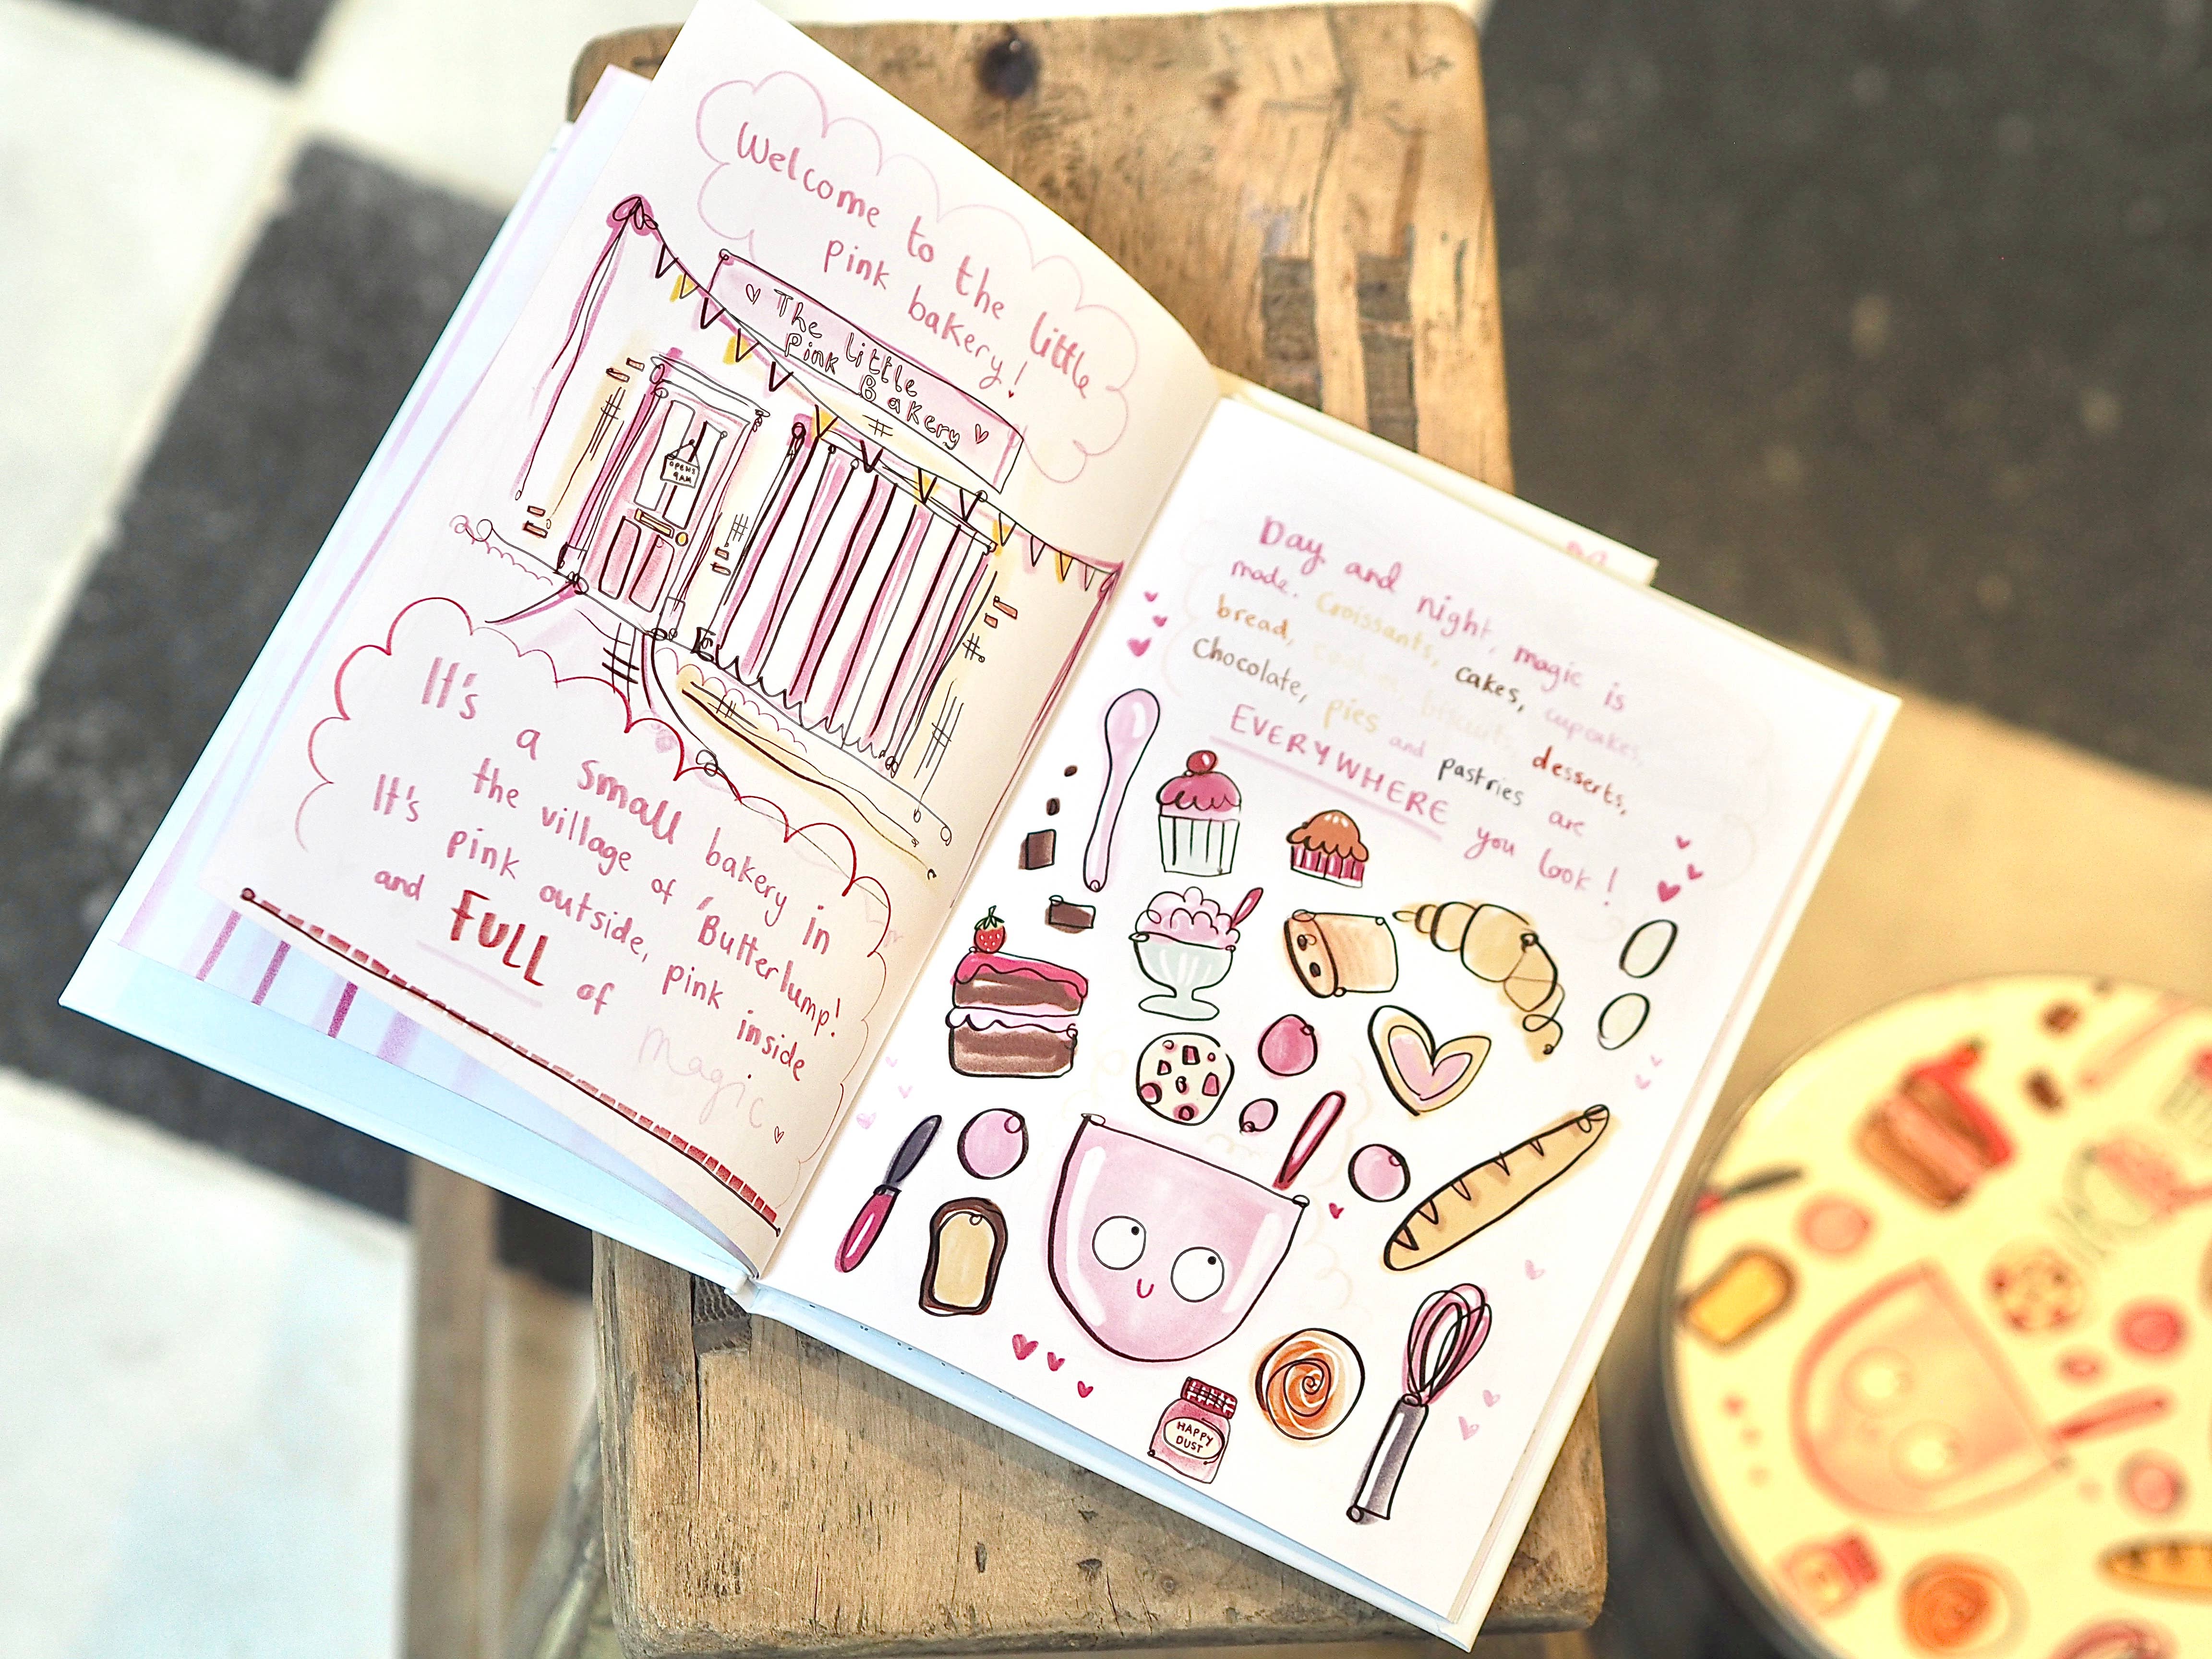 Welcome to the little
pink bakery!
The little
Pink Bakery
OPENS
9AM
It's a small bakery in
the village of 'Butterlump!
It's pink outside, pink inside
and FULL of magic
Day and night, magic is
made. Croissants, cakes, cupcakes,
bread, cookies, biscuits, desserts,
Chocolate, pies and pastries are
EVERYWHERE you look!
HAPPY
DUST